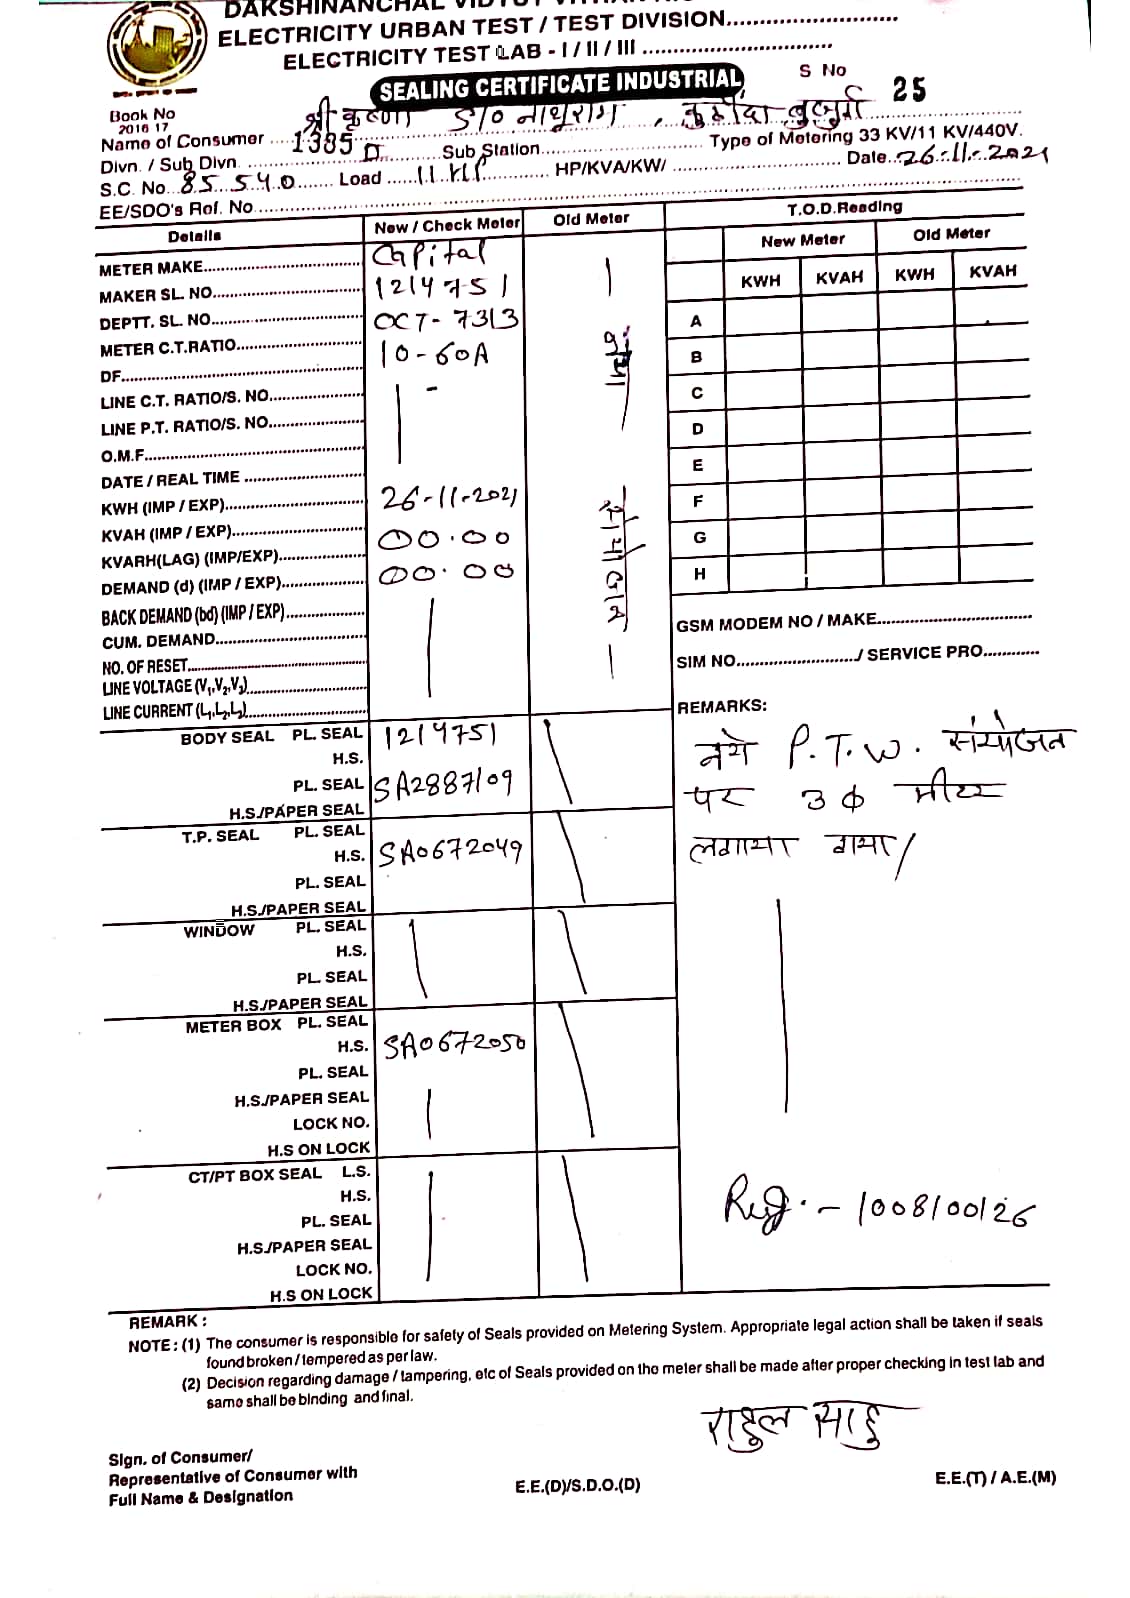 DAKSHINANCHAL VIDYUT VITRAN
ELECTRICITY URBAN TEST / TEST DIVISION
ELECTRICITY TEST LAB - I / II / III
SEALING CERTIFICATE INDUSTRIAL
S No 25
Book No
2016 17
Name of Consumer श्री कृष्णा S/O नाथूराम,
1385 Type of Metering 33 KV/11 KV/440V.
Divn. / Sub Divn. II Sub Station
S.C. No. 85 540 Load 11 KW HP/KVA/KW/ Date 26-11-2021
EE/SDO's Ref. No
Details New / Check Meter Old Meter T.O.D.Reading
New Meter Old Meter
KWH KVAH KWH KVAH
METER MAKE Capital
MAKER SL. NO 1214751
DEPTT. SL. NO OCT-7313
METER C.T.RATIO 10-60A
DF
LINE C.T. RATIO/S. NO
LINE P.T. RATIO/S. NO
O.M.F
DATE / REAL TIME
KWH (IMP / EXP) 26-11-2021
KVAH (IMP / EXP) 00.00
KVARH(LAG) (IMP/EXP)
DEMAND (d) (IMP / EXP) 00.00
BACK DEMAND (bd) (IMP / EXP)
CUM. DEMAND
NO. OF RESET
LINE VOLTAGE (V1,V2,V3)
LINE CURRENT (L1,L2,L3)
A
B
C
D
E
F
G
H
GSM MODEM NO / MAKE
SIM NO / SERVICE PRO
REMARKS:
नये P.T.W. संयोजन
पर 3 Φ मीटर
लगाया गया/
Reg :- 1008/00126
BODY SEAL PL. SEAL 1214751
H.S.
PL. SEAL SA2887109
H.S./PAPER SEAL
T.P. SEAL PL. SEAL
H.S. SA0672049
PL. SEAL
H.S./PAPER SEAL
WINDOW PL. SEAL
H.S.
PL. SEAL
H.S./PAPER SEAL
METER BOX PL. SEAL
H.S. SA0672050
PL. SEAL
H.S./PAPER SEAL
LOCK NO.
H.S ON LOCK
CT/PT BOX SEAL L.S.
H.S.
PL. SEAL
H.S./PAPER SEAL
LOCK NO.
H.S ON LOCK
REMARK :
NOTE : (1) The consumer is responsible for safety of Seals provided on Metering System. Appropriate legal action shall be taken if seals
found broken / tempered as per law.
(2) Decision regarding damage / tampering, etc of Seals provided on the meter shall be made after proper checking in test lab and
same shall be binding and final.
राहुल साहु
Sign. of Consumer/
Representative of Consumer with
Full Name & Designation
E.E.(D)/S.D.O.(D)
E.E.(T) / A.E.(M)